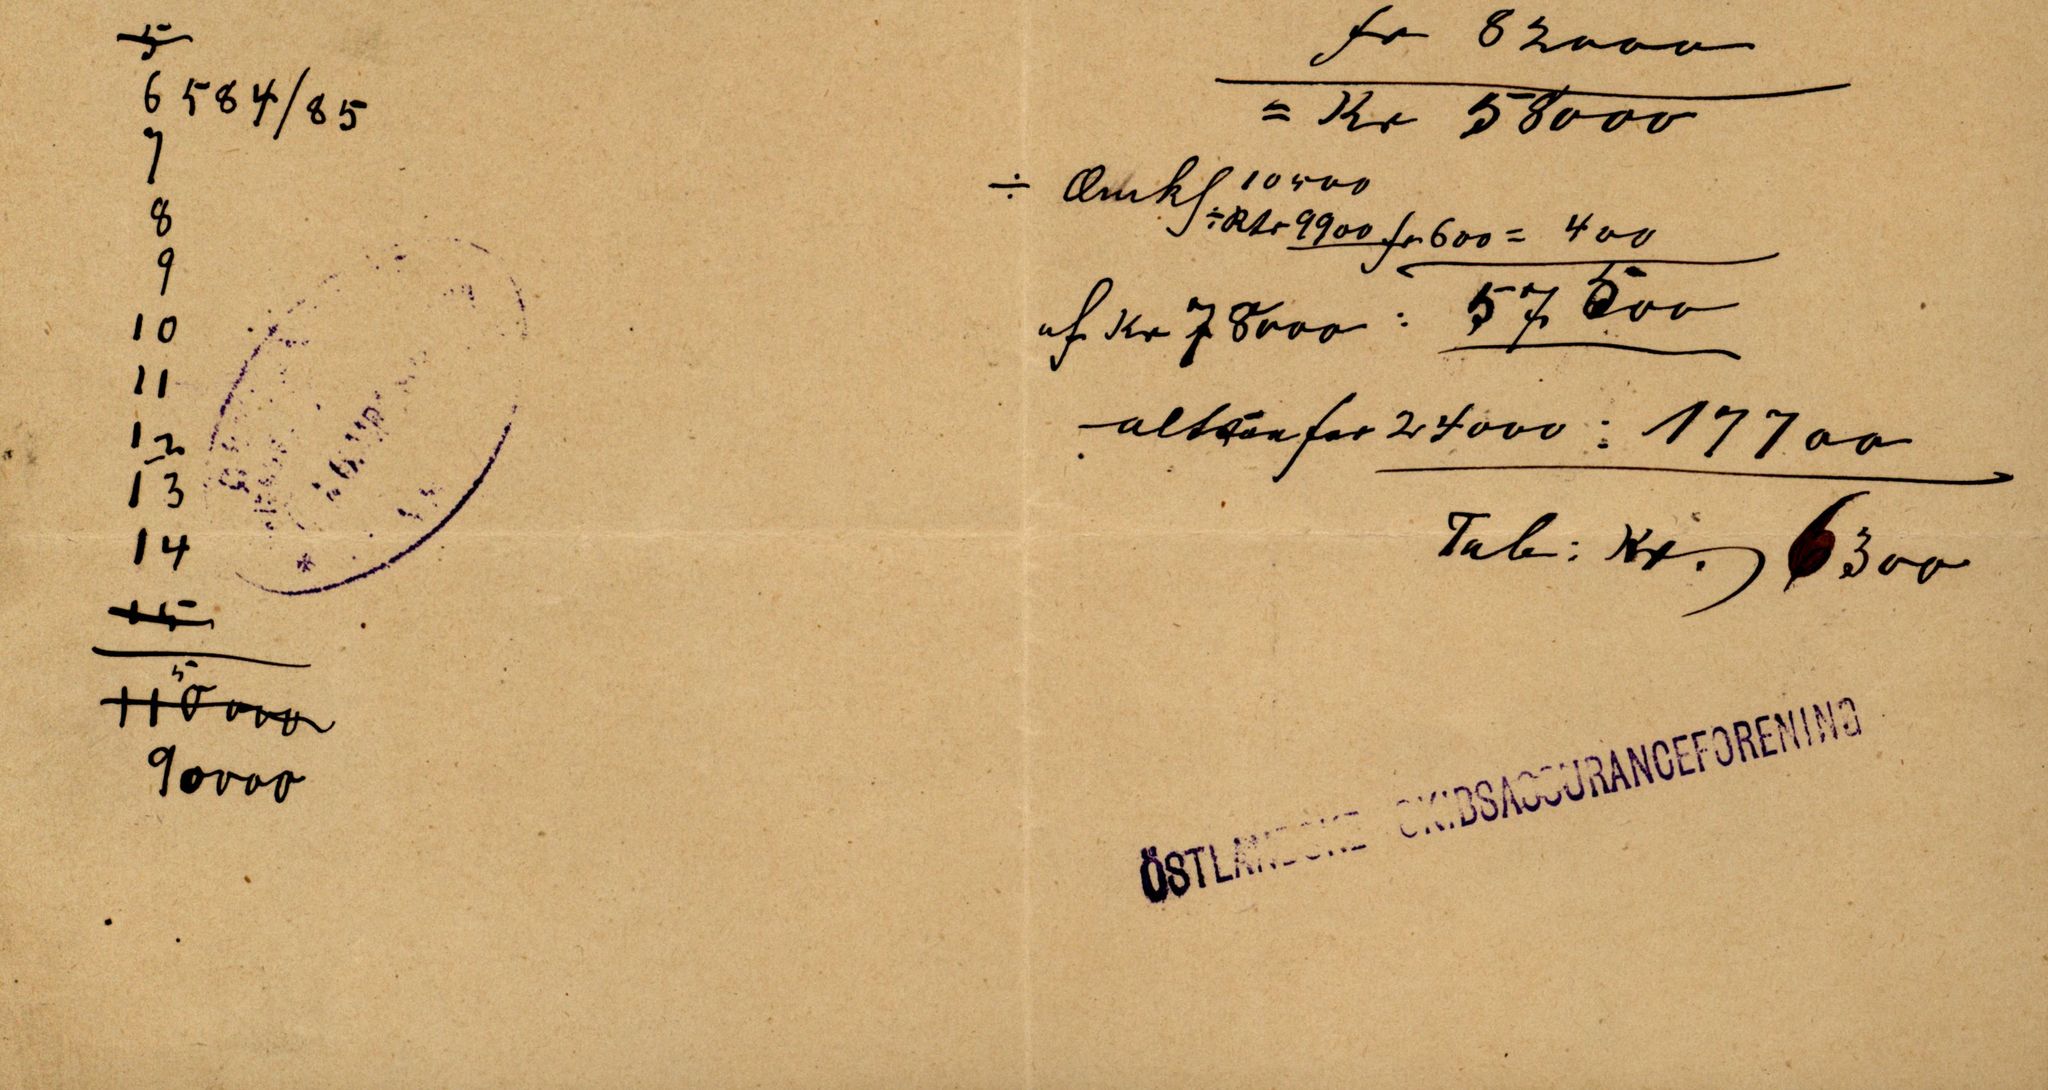 5
6 584/85
7
8
9
10
11
12
13
14
15
5
110000
90000
fr 82000
= Kr 58000
÷ Omks 10500
÷ Rtr 9900 fr 600 = 400
af Kr 78000 : 57600
altsaa for 24000 : 17700
Tab: Kr. 6300
ÖSTLANDSKE SKIBSASSURANCEFORENING